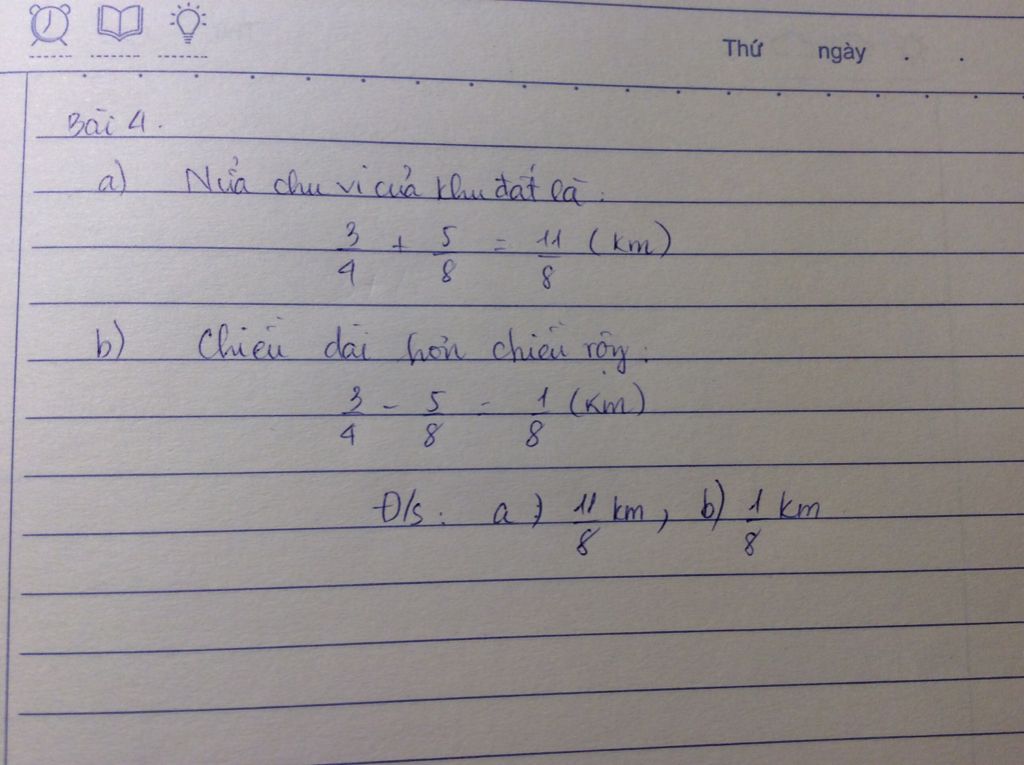 Thứ ngày . .
Bài 4.
a) Nửa chu vi của khu đất là:
3/4 + 5/8 = 11/8 (km)
b) Chiều dài hơn chiều rộng:
3/4 - 5/8 = 1/8 (km)
Đ/s: a) 11/8 km, b) 1/8 km